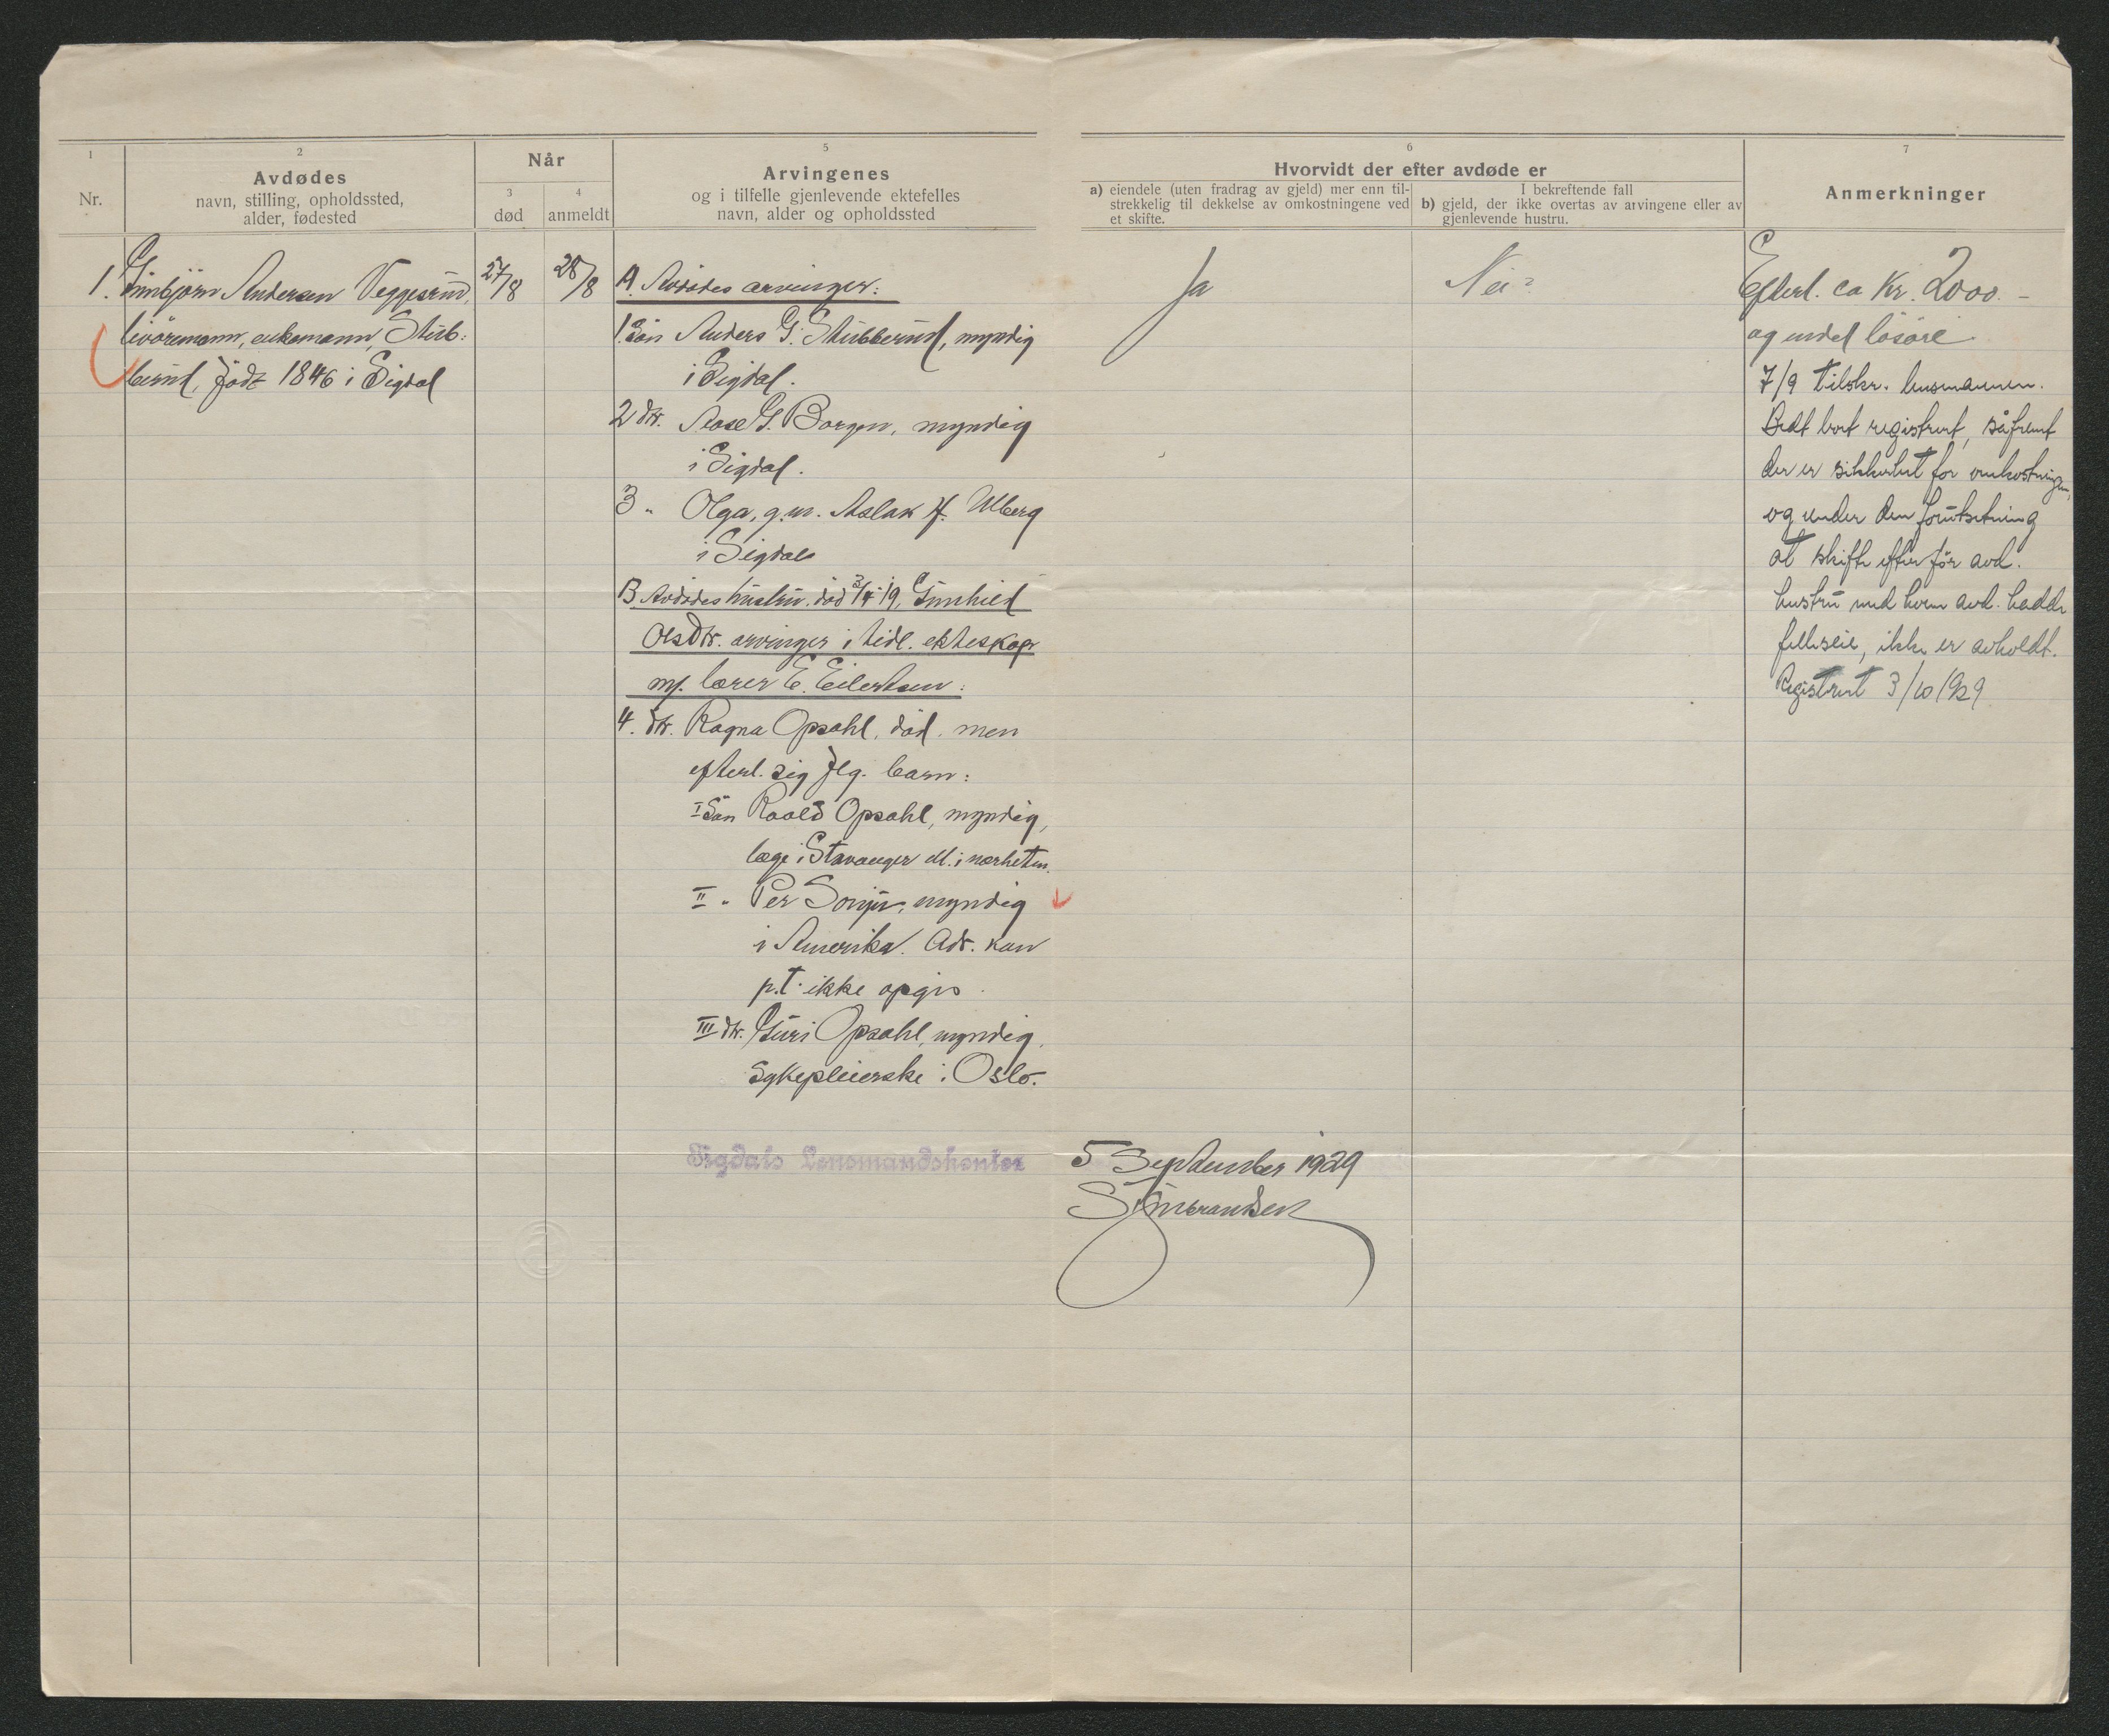 1
2
Avdødes
navn, stilling, opholdssted,
alder, fødested
Nr.
Når
3
død
4
anmeldt
5
Arvingenes
og i tilfelle gjenlevende ektefelles
navn, alder og opholdssted
6
Hvorvidt der efter avdøde er
a) eiendele (uten fradrag av gjeld) mer enn til-
strekkelig til dekkelse av omkostningene ved
et skifte.
I bekreftende fall
b) gjeld, der ikke overtas av arvingene eller av
gjenlevende hustru.
7
Anmerkninger
1. Gunbjörn Andersen Veggesrud,
livöremann, enkemann, Stub-
berud, födt 1846 i Sigdal
27/8
28/8
A. Avdödes arvinger:
1. Sön Anders G. Stubberud, myndig
i Sigdal.
2 dtr. Aase G. Borgen, myndig
i Sigdal.
3 " Olga, g.m. Aslak H. Ulberg
i Sigdal
B Avdödes hustru, död 3/4 19, Gunhild
Olsdtr. arvinger i tidl. ekteskap
m/ lærer E. Eilertsen:
4. dtr. Ragna Opsahl, död, men
efterl. sig flg. barn:
I Sön Roald Opsahl, myndig,
læge i Stavanger ell. i nærheten.
II " Per myndig
i Amerika. Adr. kan
p.t. ikke opgis.
III dtr. Guri Opsahl, myndig,
Sykepleierske i Oslo.
Ja
Nei
Efterl. ca Kr. 2000.-
og endel lösöre
7/9 Tilskr. lensmannen.
Bedt bort registrert, såfremt
der er sikkerhet for omkostningen,
og under den forutsetning
at skifte efter för avd.
hustru med hvem avd. hadde
felleseie, ikke er avholdt.
Registrert 3/10 1929
Sigdals Lensmandskontor
5 September 1929
S. Gulbrandsen